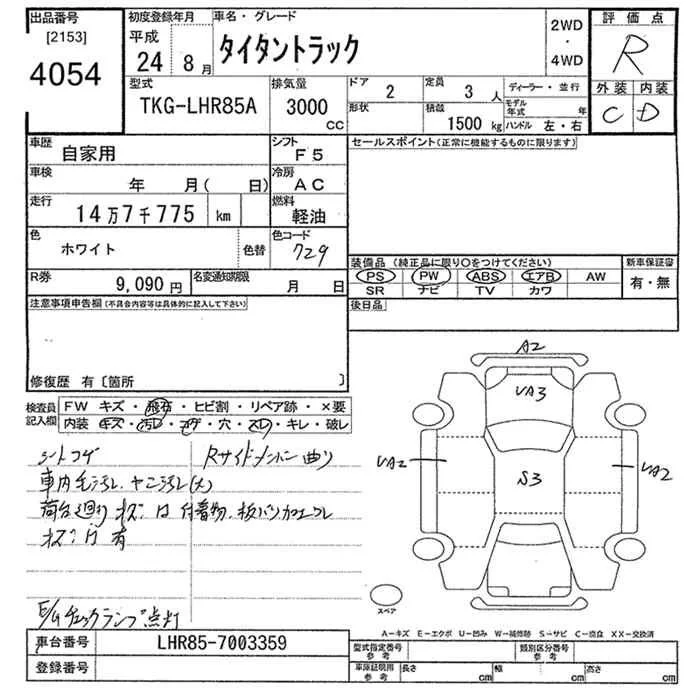 出品番号 [2153] 4054
初度登録年月 平成 24年 8月
車名・グレード タイタントラック
2WD・4WD
評価点 R
外装 C 内装 D
型式 TKG-LHR85A
排気量 3000 CC
ドア 2 定員 3人
形状 積載 1500kg
ディーラー・並行
モデル年式 年
ハンドル 左・右
車歴 自家用
シフト F5
車検 年 月( 日)
冷房 AC
走行 14万7千775 km
燃料 軽油
色 ホワイト 色替
色コード 729
R券 9,090円
名変通知期限 月 日
セールスポイント(正常に機能するものに限ります)
装備品 (純正品に限り○をつけてください)
PS PW ABS エアB AW
SR ナビ TV カワ
新車保証書 有・無
後日品
注意事項申告欄(不具合内容等は具体的に記入して下さい)
修復歴 有〔箇所 〕
検査員記入欄
FW キズ・飛石・ヒビ割・リペア跡・×要
内装 キズ・汚レ・コゲ・穴・スレ・キレ・破レ
シートコゲ
Rサイドメンバー曲り
車内毛汚レ、ヤニ汚レ(大)
荷台廻りキズ
付着物、板バリ加工
有
E/Gチェックランプ点灯
A2
UA3
UA2
S3
UA2
スペア
A-キズ E-エクボ U-凹み W-補修跡 S-サビ C-腐食 XX-交換済
車台番号 LHR85-7003359
登録番号
型式指定番号 参考
類別区分番号 参考
車庫証明用 参考 長さ cm 幅 cm 高さ cm